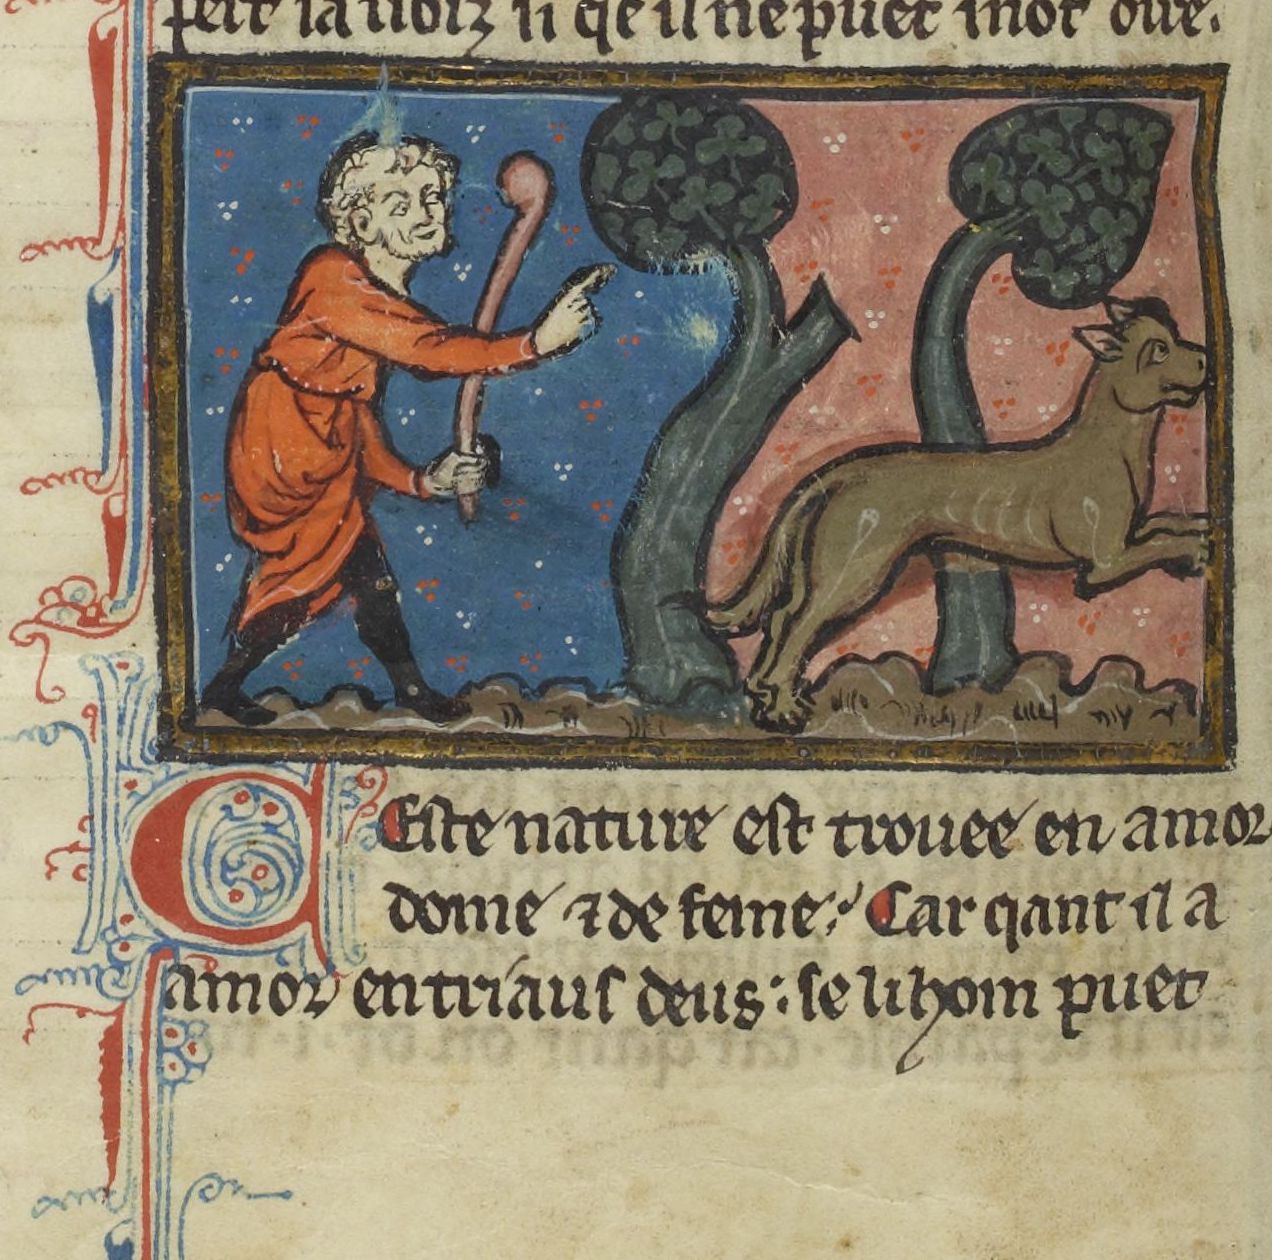 pert sa uoiz si qe il ne puet mot dire.
Ceste nature est trouee en amor
dome ⁊ de feme. Car qant il a
amor entriaus deus: se li hom puet